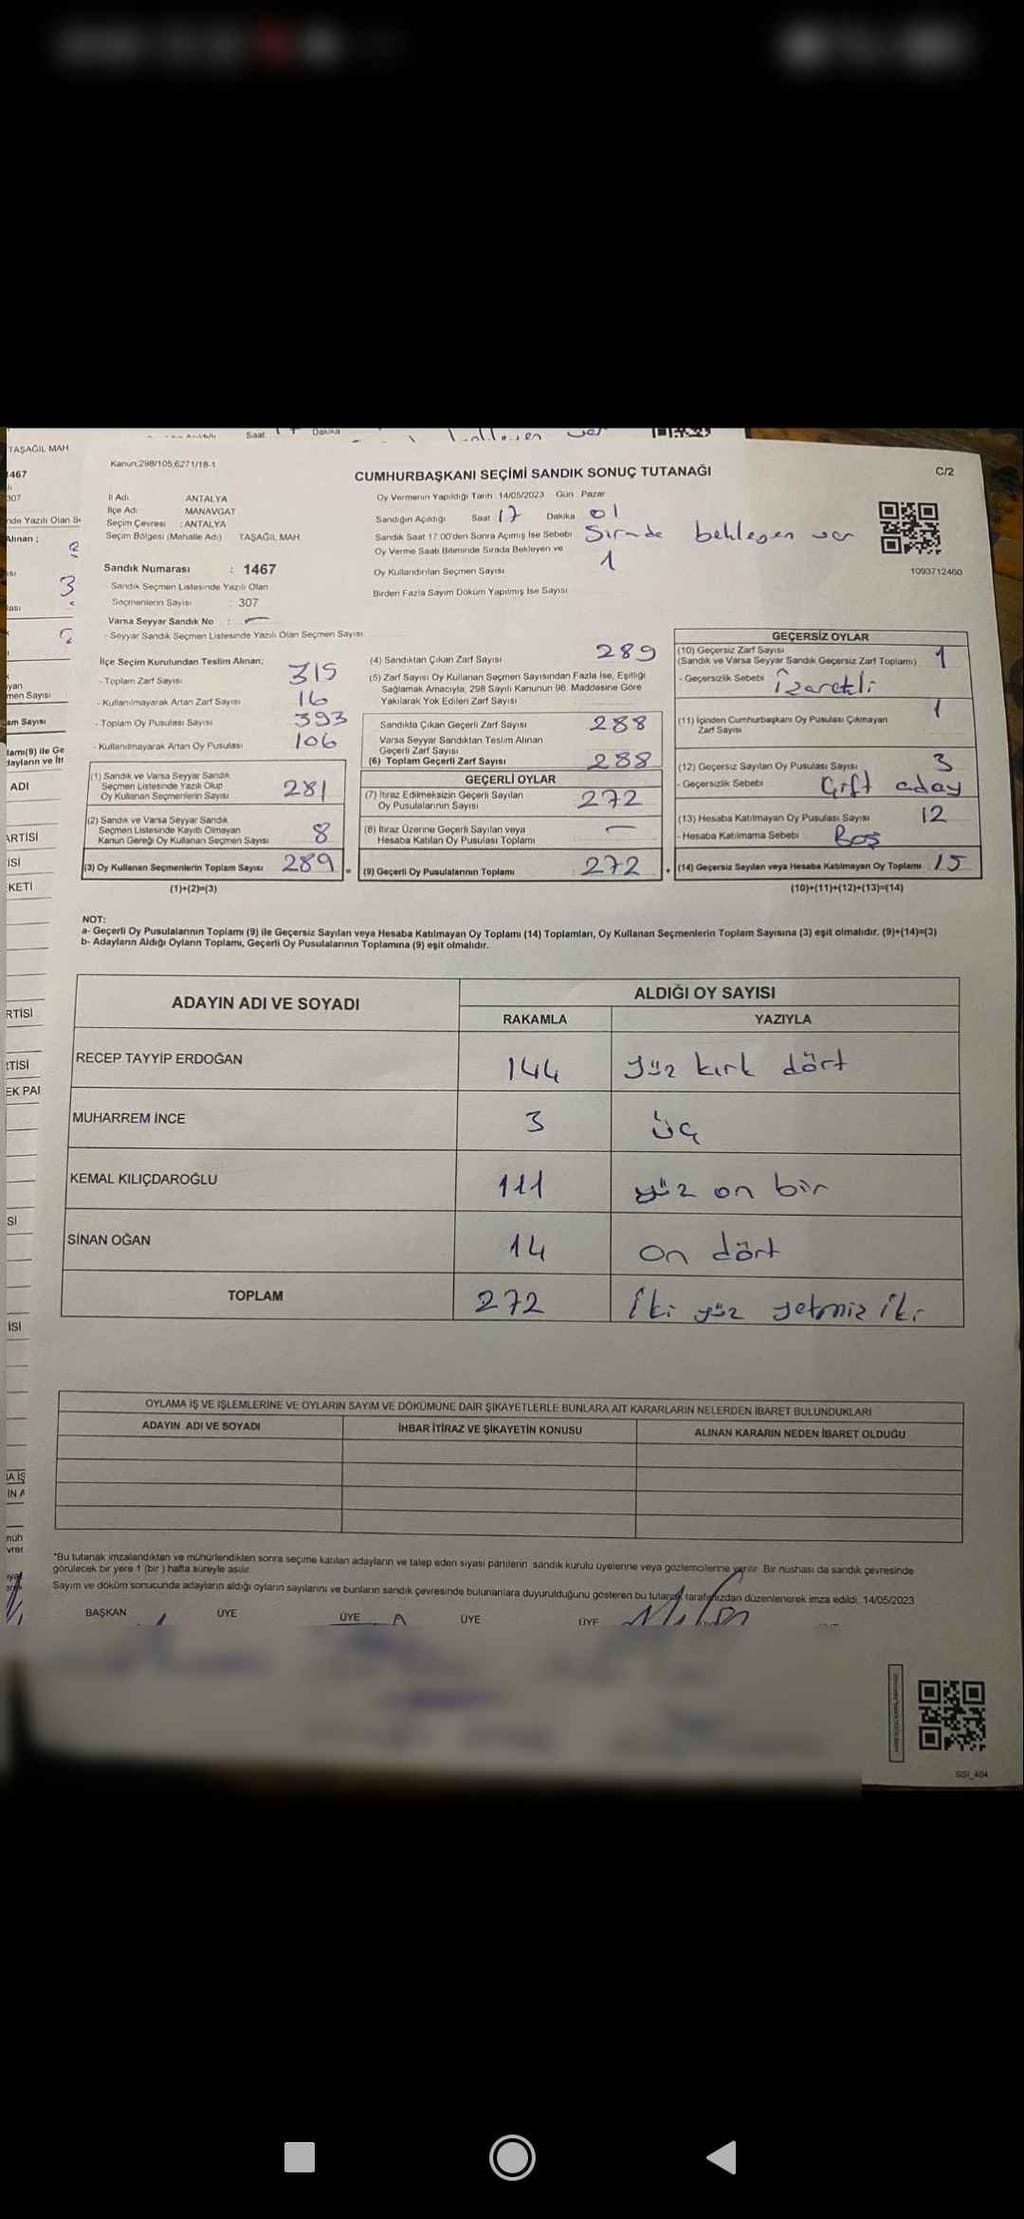 TAŞAĞIL MAH
Kanun:298/105,6271/18-1
CUMHURBAŞKANI SEÇİMİ SANDIK SONUÇ TUTANAĞI
C/2
İl Adı ANTALYA
İlçe Adı MANAVGAT
Seçim Çevresi : ANTALYA
Seçim Bölgesi (Mahalle Adı) TAŞAĞIL MAH
Sandık Numarası : 1467
Sandık Seçmen Listesinde Yazılı Olan
Seçmenlerin Sayısı : 307
Varsa Seyyar Sandık No : —
- Seyyar Sandık Seçmen Listesinde Yazılı Olan Seçmen Sayısı
Oy Vermenin Yapıldığı Tarih : 14/05/2023 Gün : Pazar
Sandığın Açıldığı Saat 17 Dakika 01
Sandık Saat 17.00'den Sonra Açımış İse Sebebi Sırada bekleyen var
Oy Verme Saati Bitiminde Sırada Bekleyen ve
Oy Kullandırılan Seçmen Sayısı 1
Birden Fazla Sayım Döküm Yapılmış İse Sayısı
1093712460
İlçe Seçim Kurulundan Teslim Alınan;
- Toplam Zarf Sayısı 315
- Kullanılmayarak Artan Zarf Sayısı 16
- Toplam Oy Pusulası Sayısı 393
- Kullanılmayarak Artan Oy Pusulası 106
(1) Sandık ve Varsa Seyyar Sandık
Seçmen Listesinde Yazılı Olup
Oy Kullanan Seçmenlerin Sayısı 281
(2) Sandık ve Varsa Seyyar Sandık
Seçmen Listesinde Kayıtlı Olmayan
Kanun Gereği Oy Kullanan Seçmen Sayısı 8
(3) Oy Kullanan Seçmenlerin Toplam Sayısı 289 =
(1)+(2)=(3)
(4) Sandıktan Çıkan Zarf Sayısı 289
(5) Zarf Sayısı Oy Kullanan Seçmen Sayısından Fazla İse, Eşitliği
Sağlamak Amacıyla, 298 Sayılı Kanunun 98. Maddesine Göre
Yakılarak Yok Edilen Zarf Sayısı
Sandıkta Çıkan Geçerli Zarf Sayısı 288
Varsa Seyyar Sandıktan Teslim Alınan
Geçerli Zarf Sayısı
(6) Toplam Geçerli Zarf Sayısı 288
GEÇERLİ OYLAR
(7) İtiraz Edilmeksizin Geçerli Sayılan
Oy Pusulalarının Sayısı 272
(8) İtiraz Üzerine Geçerli Sayılan veya
Hesaba Katılan Oy Pusulası Toplamı —
(9) Geçerli Oy Pusulalarının Toplamı 272 +
GEÇERSİZ OYLAR
(10) Geçersiz Zarf Sayısı
(Sandık ve Varsa Seyyar Sandık Geçersiz Zarf Toplamı) 1
- Geçersizlik Sebebi İzaretli
(11) İçinden Cumhurbaşkanı Oy Pusulası Çıkmayan
Zarf Sayısı 1
(12) Geçersiz Sayılan Oy Pusulası Sayısı 3
- Geçersizlik Sebebi Çift aday
(13) Hesaba Katılmayan Oy Pusulası Sayısı 12
- Hesaba Katılmama Sebebi Boş
(14) Geçersiz Sayılan veya Hesaba Katılmayan Oy Toplamı 15
(10)+(11)+(12)+(13)=(14)
NOT:
a- Geçerli Oy Pusulalarının Toplamı (9) ile Geçersiz Sayılan veya Hesaba Katılmayan Oy Toplamı (14) Toplamları, Oy Kullanan Seçmenlerin Toplam Sayısına (3) eşit olmalıdır. (9)+(14)=(3)
b- Adayların Aldığı Oyların Toplamı, Geçerli Oy Pusulalarının Toplamına (9) eşit olmalıdır.
ADAYIN ADI VE SOYADI
ALDIĞI OY SAYISI
RAKAMLA YAZIYLA
RECEP TAYYİP ERDOĞAN 144 yüz kırk dört
MUHARREM İNCE 3 üç
KEMAL KILIÇDAROĞLU 111 yüz on bir
SİNAN OĞAN 14 on dört
TOPLAM 272 İki yüz yetmiz iki
OYLAMA İŞ VE İŞLEMLERİNE VE OYLARIN SAYIM VE DÖKÜMÜNE DAİR ŞİKAYETLERLE BUNLARA AİT KARARLARIN NELERDEN İBARET BULUNDUKLARI
ADAYIN ADI VE SOYADI İHBAR İTİRAZ VE ŞİKAYETİN KONUSU ALINAN KARARIN NEDEN İBARET OLDUĞU
*Bu tutanak imzalandıktan ve mühürlendikten sonra seçime katılan adayların ve talep eden siyasi partilerin sandık kurulu üyelerine veya gözlemcilerine verilir. Bir nüshası da sandık çevresinde
görülecek bir yere 1 (bir ) hafta süreyle asılır.
Sayım ve döküm sonucunda adayların aldığı oyların sayılarını ve bunların sandık çevresinde bulunanlara duyurulduğunu gösteren bu tutanak tarafımızdan düzenlenerek imza edildi. 14/05/2023
BAŞKAN ÜYE ÜYE ÜYE ÜYE
SSI_404